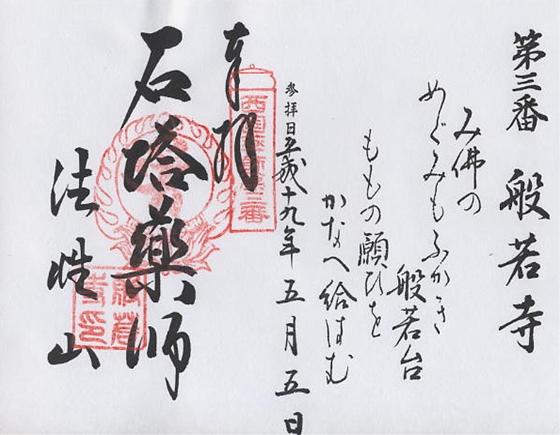 第三番 般若寺
み佛の
めぐみもふかき
般若台
ももの願ひを
かなへ給はむ
参拝日平成十九年五月五日
奉拝
石塔薬師
法性山